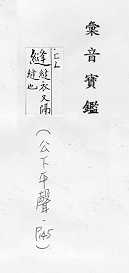 彙音寶鑑
縫 縫衣又隙
縫也
(公下平聲·P.45)